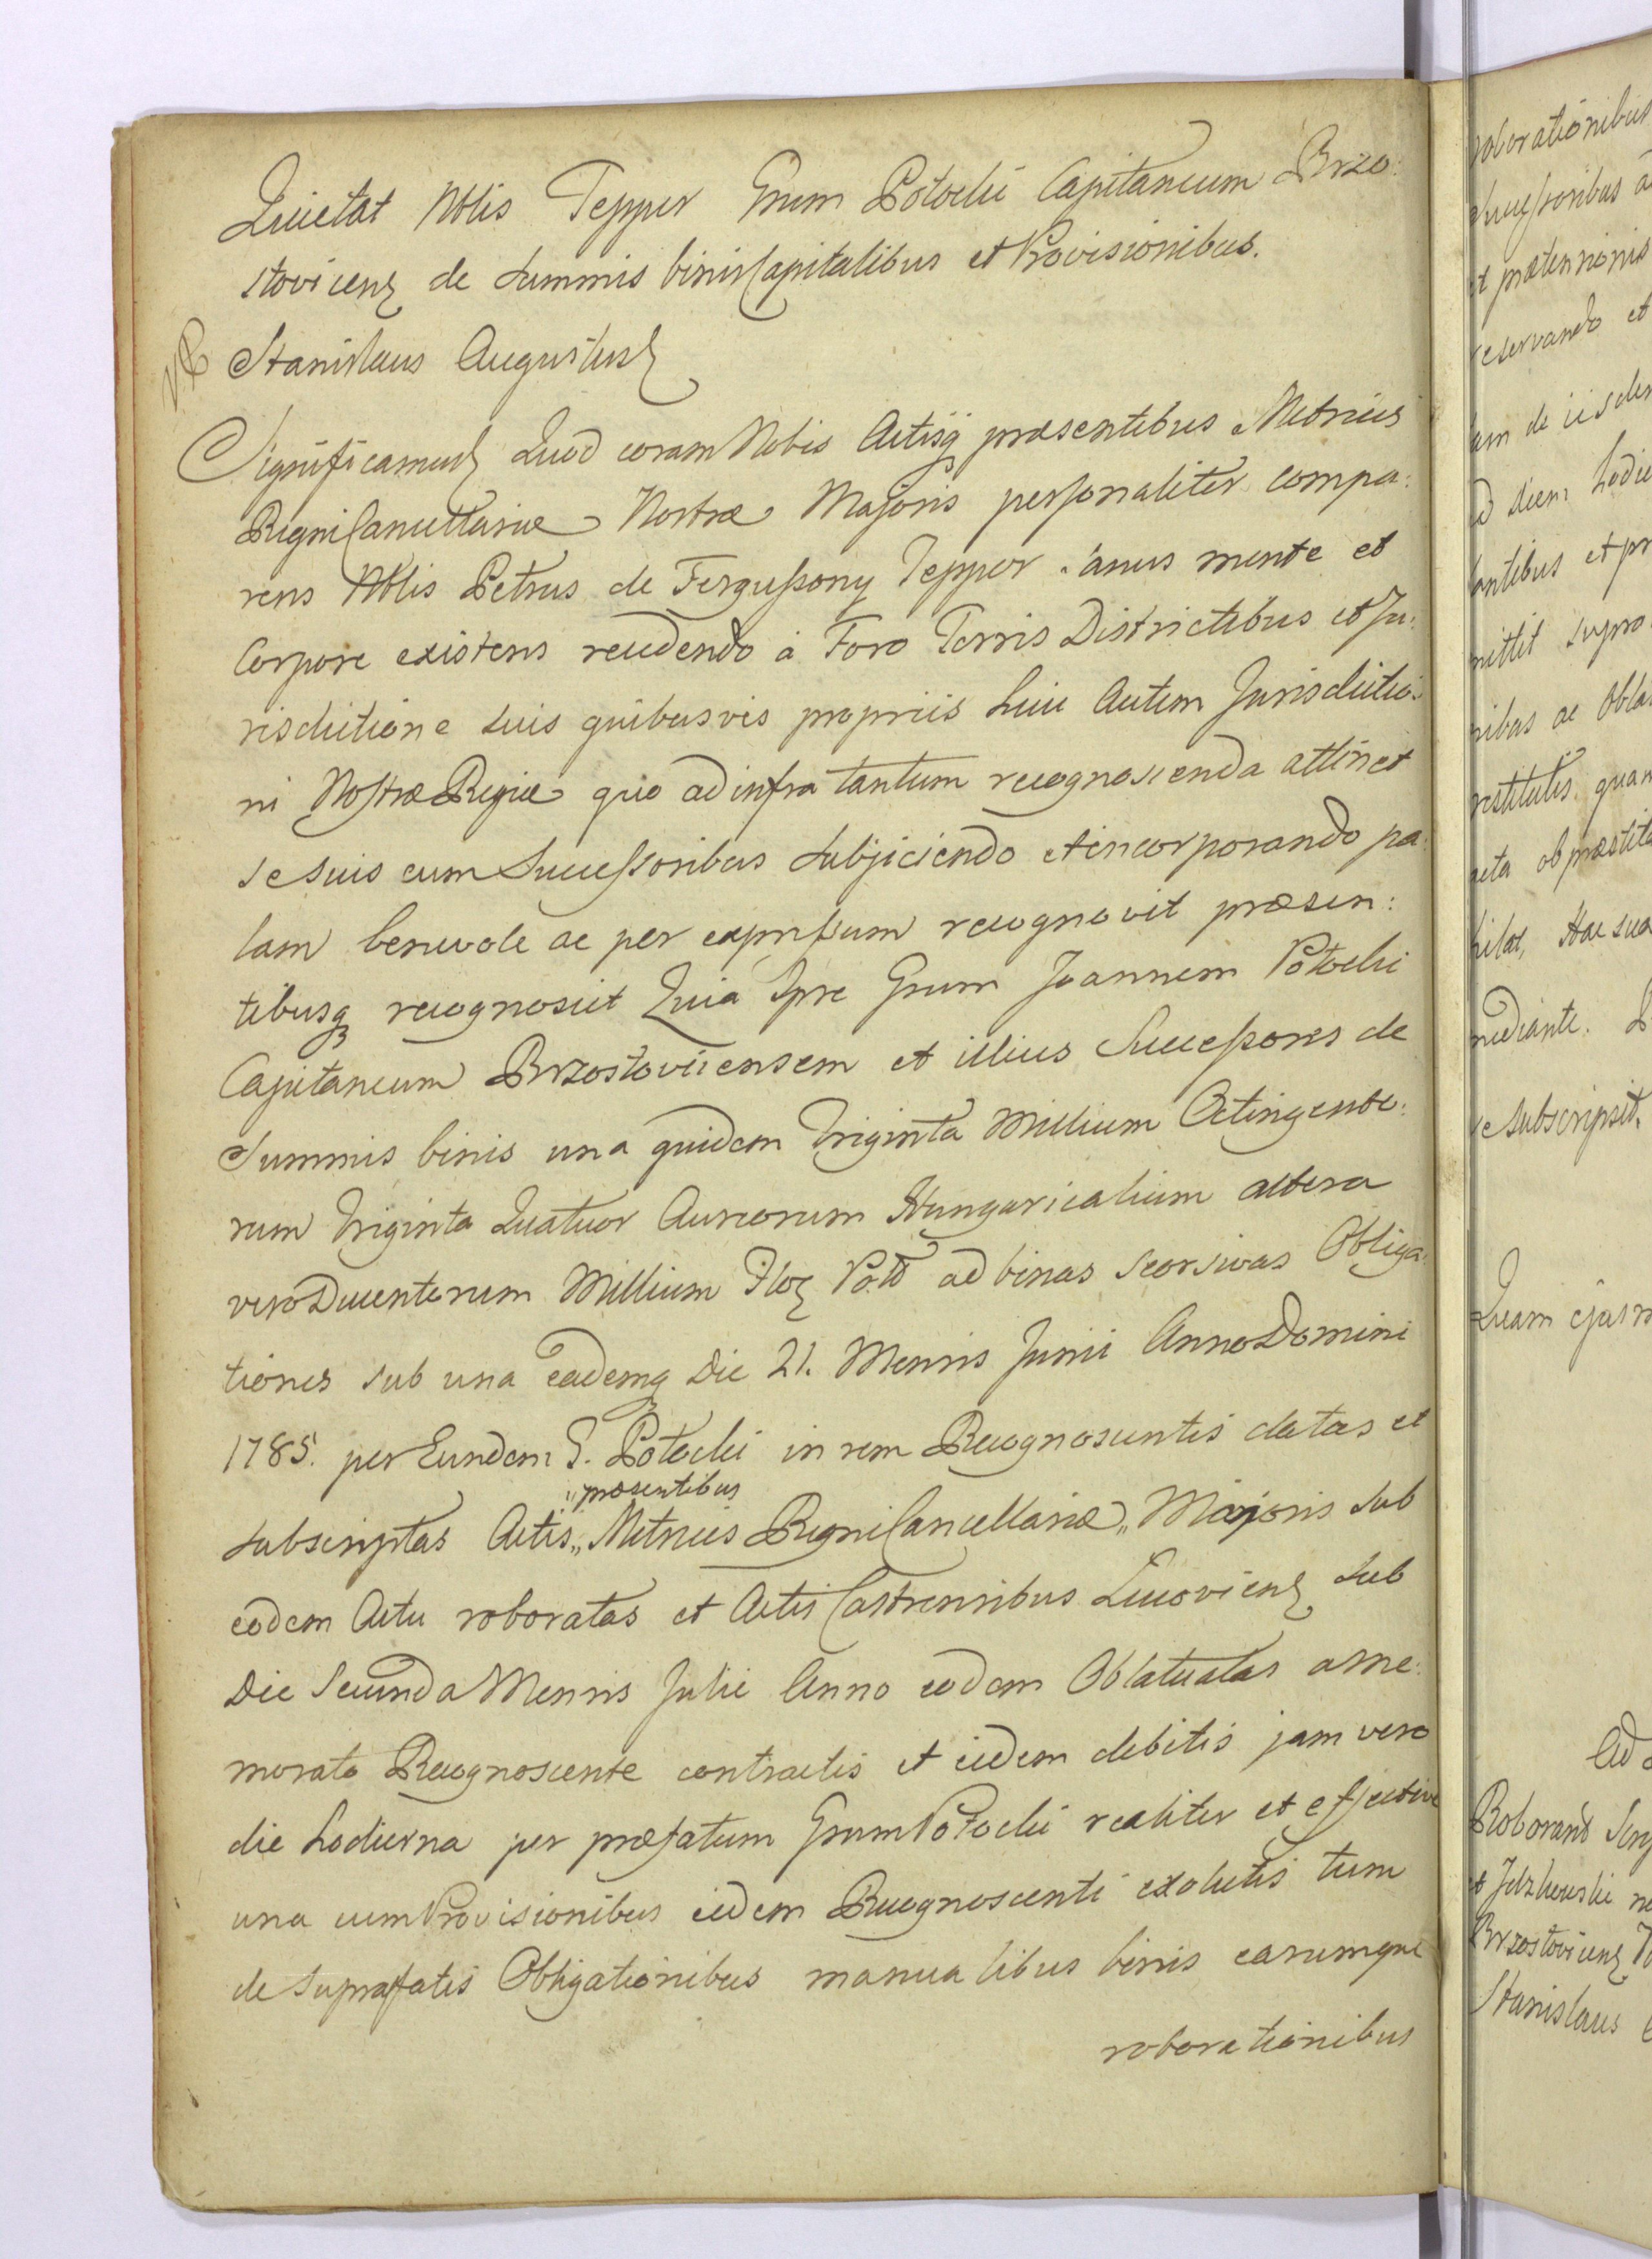 Quietat Nblis Tepper Gnum Potocki Capitaneum Brzo:
stovicens de Summis binis Capitalibus et Provisionibus.
Stanislaus Augustus
Significamus Quod coram Nobis Actisq præsentibus Metrices
Regni Cancellariæ Nostræ Majoris personaliter compa:
rens Nblis Petrus de Fergussony Tepper sanus mente et
Corpore existens recedendo à Foro Terris Districtibus et Ju:
risdictione suis quibusvis propriis huic Autem Jurisdictio:
ni Nostræ Regiæ quo ad infra tantum recognoscenda attinet
se suis cum Successoribus Subjiciendo et incorporando pa:
lam benevole ac per expressum recognovit præsen:
tibusq recognoscit Quia Ipse Gnum Joannem Potocki
Capitaneum Brzostoviicensem et illius Successores de
Summis binis una quidem Triginta Millium Octingento:
rum Triginta Quatuor Aureorum Hungaricalium altera
vero Ducentorum Millium Flor Poll ad binas seorsivas Obliga:
tiones sub una eademq Die 21. Mensis Junii Anno Domini
1785. per Eundem G. Potocki in rem Recognoscentis datas et
præsentibus
Subscriptas Actis „ Metrices Regni Cancellariæ „ Majoris sub
eodem Actu roboratas et Actis Castrensibus Lucoviens sub
Die Secunda Mensis Julii Anno eodem Oblatuatas a me:
morato Recognoscente contractis et eidem debitis jam vero
die hodierna per præfatum Gnum Potocki realiter et effective
una cum Provisionibus eidem Recognoscenti exolutis tum
de supræfatis Obligationibus manualibus binis earumque
roborationibus
roborationibus
Successoribus a
et prætensionis
reservando et
lam de iisdem
ad diem hodie
antibus et pr
mittit supra
nibus ac Obla
restitutis quam
acta ob præstita
hilat, Hac sua
mediante.
se subscripsit.
Quam ejusm
Ad
Roborant
Brzostovicens
Stanislaus